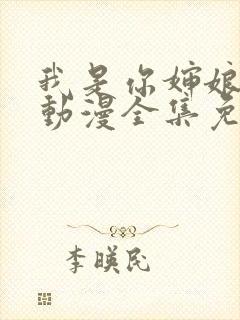 我是你婶娘
動漫全集免
李暎民